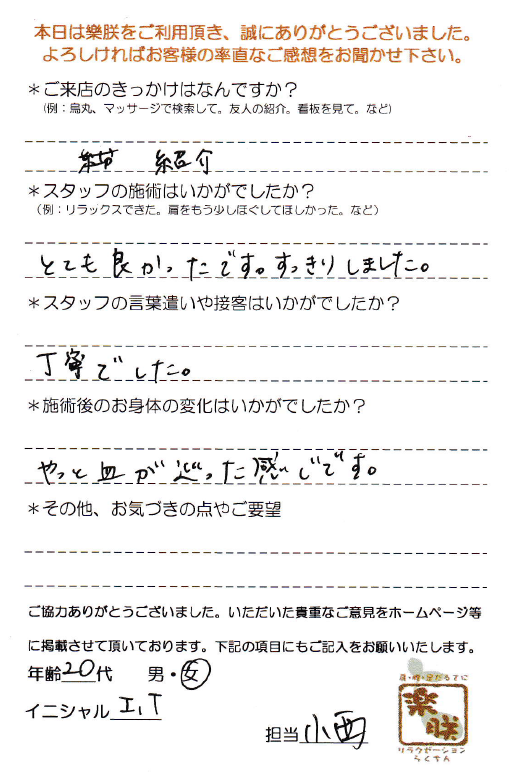 本日は樂朕をご利用頂き、誠にありがとうございました。
よろしければお客様の率直なご感想をお聞かせ下さい。
＊ご来店のきっかけはなんですか？
（例：烏丸、マッサージで検索して。友人の紹介。看板を見て。など）
紹介
＊スタッフの施術はいかがでしたか？
（例：リラックスできた。肩をもう少しほぐしてほしかった。など）
とても良かったです。すっきりしました。
＊スタッフの言葉遣いや接客はいかがでしたか？
丁寧でした。
＊施術後のお身体の変化はいかがでしたか？
やっと血が巡った感じです。
＊その他、お気づきの点やご要望
ご協力ありがとうございました。いただいた貴重なご意見をホームページ等
に掲載させて頂いております。下記の項目にもご記入をお願いいたします。
年齢20代 男・女
イニシャル エ.T
担当 小西
楽朕
リラクゼーション
らくちん